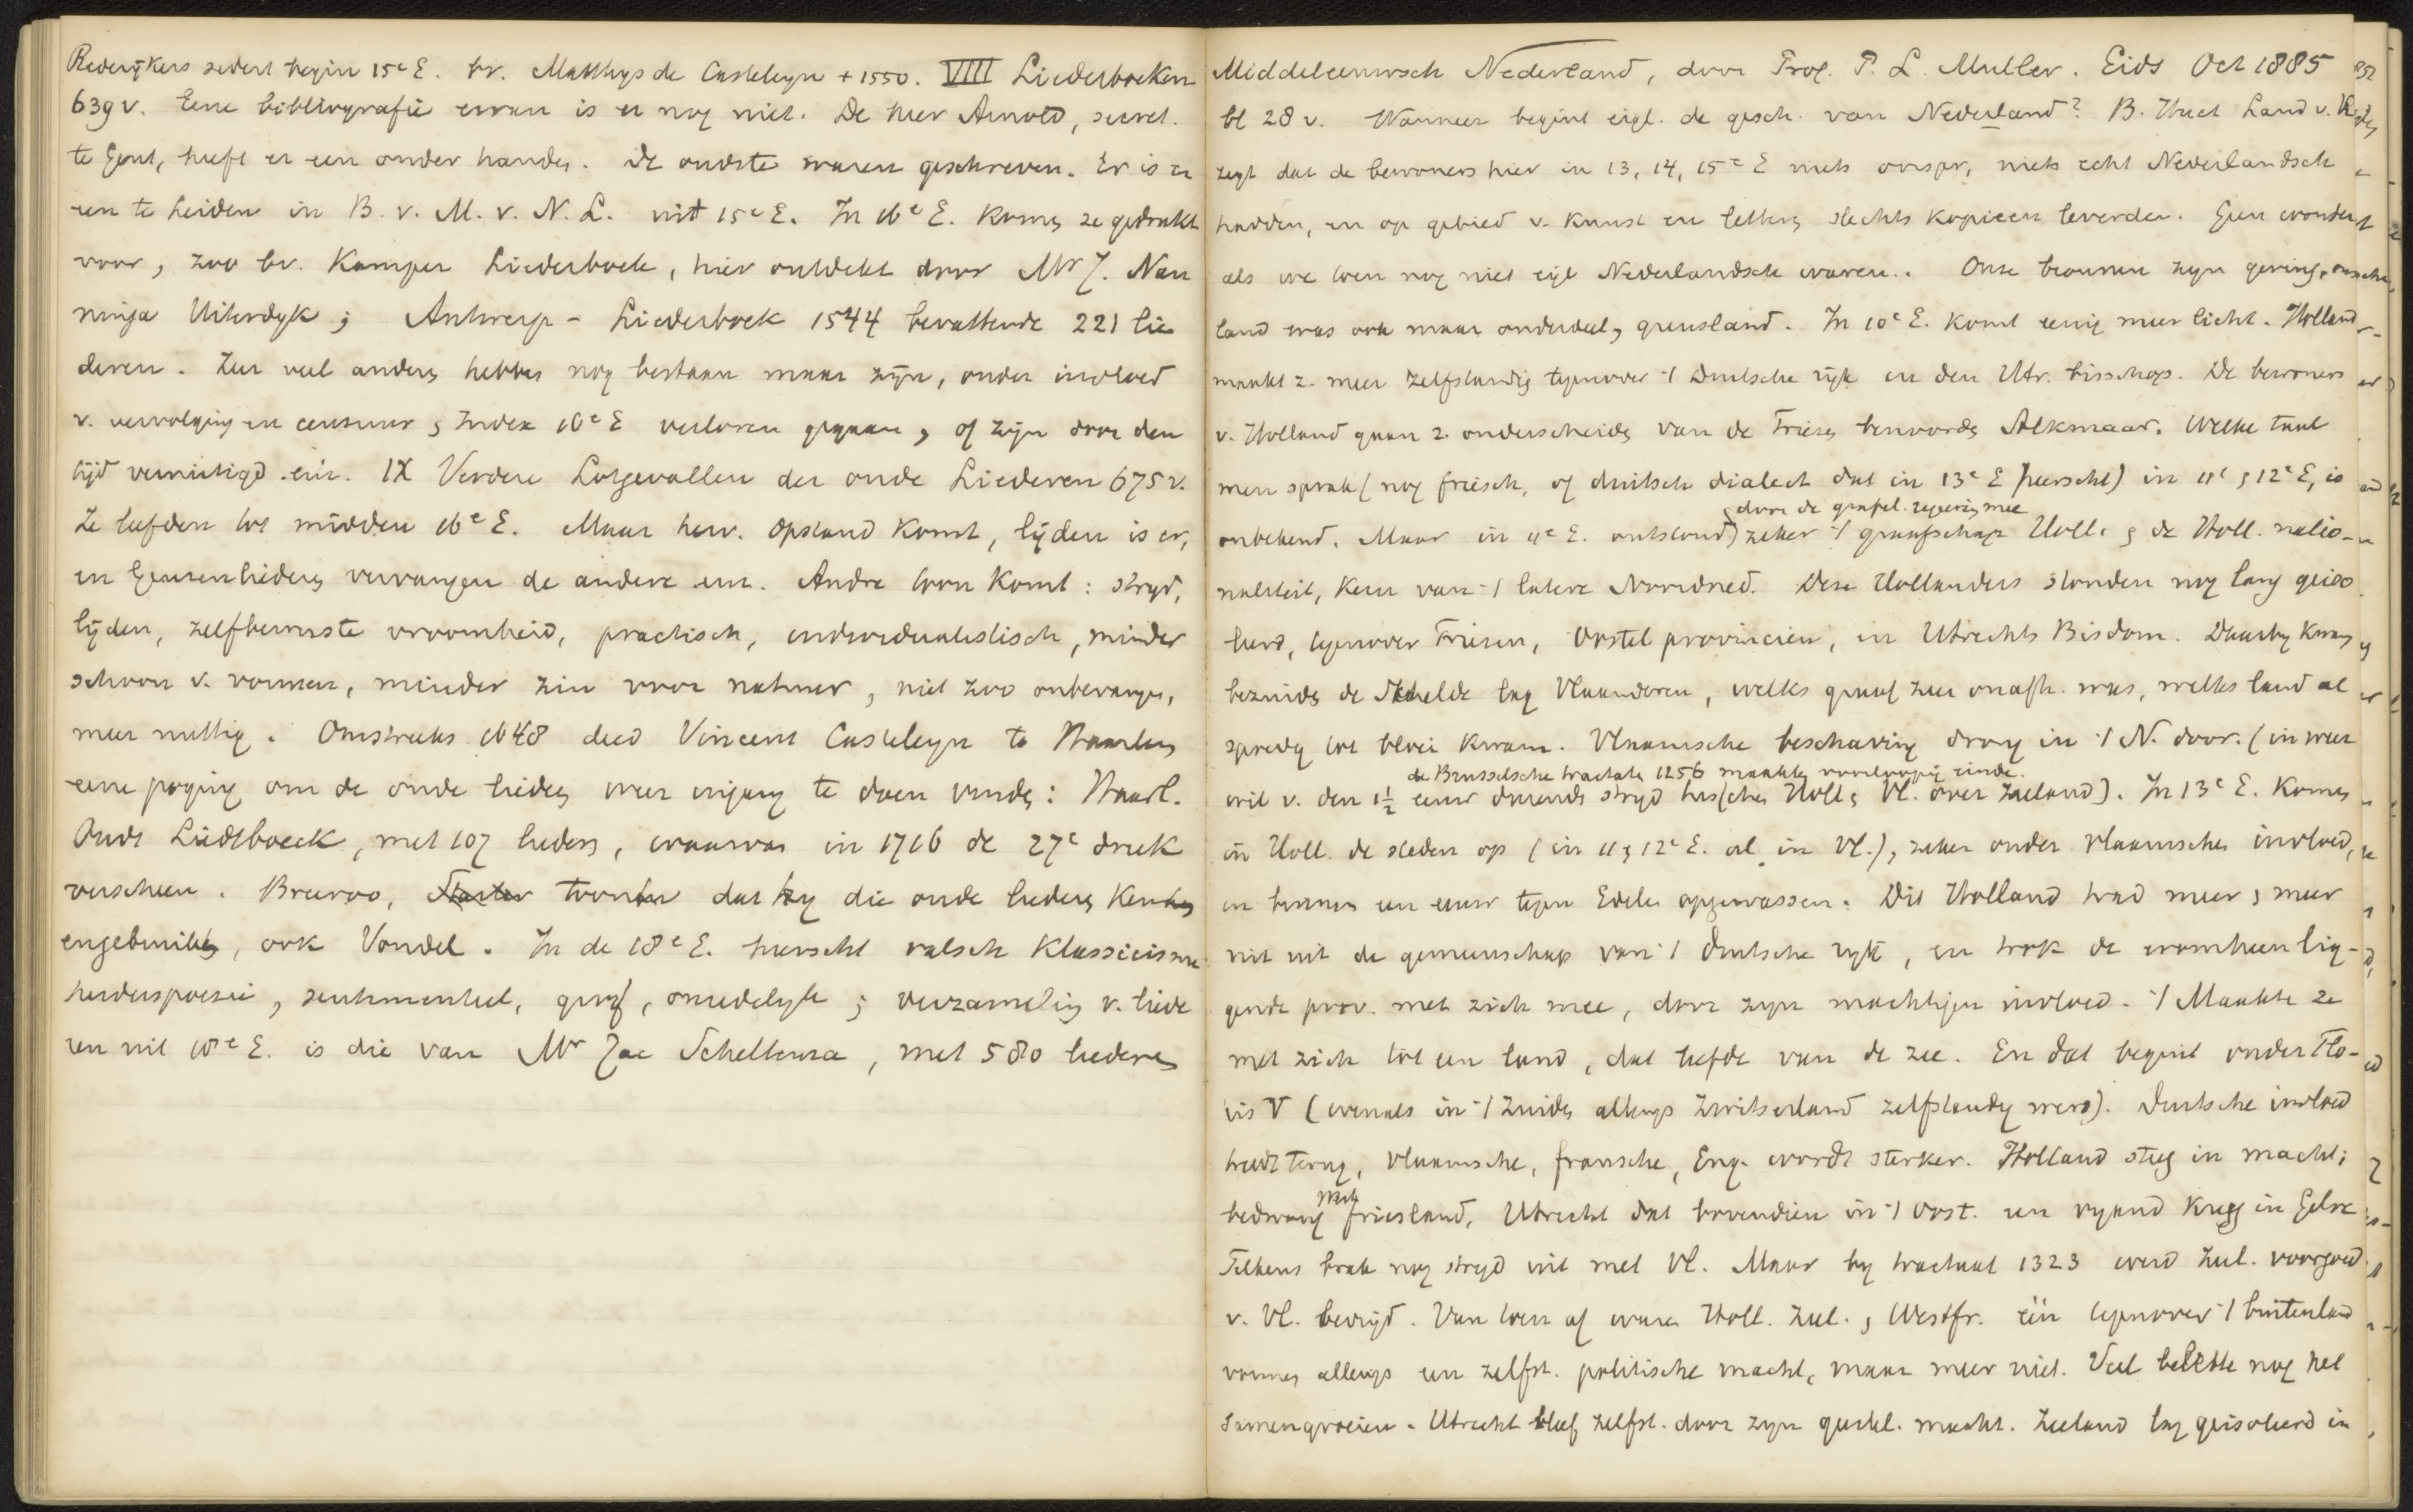 Rederijkers sedert begin 15e E. bv. Matthys de Casteleyn + 1550. VIII Liederboeken
639 v. Eene bibliografie ervan is er nog niet. De heer Arnold, secret.
te Gent, heeft er een onder handen. De oudste waren geschreven. Er is er
een te Leiden in B. v. M. v. N. L. uit 15e E. In 16e E. komen ze gedrukt
voor, zoo bv. Kamper Liederboek, hier ontdekt door Mr J. Nan
ninga Uiterdyk; Antwerp- Liederboek 1544 bevattende 221 lie
deren. Zeer veel anderen hebben nog bestaan maar zijn, onder invloed
v. vervolging en censuur, Index 16e E verloren gegaan, of zijn door den
tijd vernietigd. IX Verdere Lotgevallen der oude Liederen 675 v.
Ze leefden tot midden 16e E. Maar herv. opstand komt, lijden is er,
en Geuzenliederen vervangen de andere. Andre toon komt: stryd,
lijden, zelfbewuste vroomheid, practisch, individualistisch, minder
schoon v. vormen, minder zin voor natuur, niet zoo onbevangen,
meer nuttig. Omstreeks 1648 deed Vincent Casteleyn te Haarlem
eene poging om de oude liederen weer ingang te doen vinden: Haarl.
Oudt Liedtboeck, met 107 lieders, waarvan in 1716 de 27e druk
verscheen. Breeroo, Starter toonen dat hy die oude liederen kenden
en gebruikten, ook Vondel. In de 18e E. heerscht valsch klassicisme
herderspoezie, sentimenteel, grof, onzedelyk; verzameling v. liede
ren uit 18e E. is die van Mr Jac Scheltema, met 580 liederen
Middeleeuwsch Nederland, door Prof. P. L. Muller. Gids Oct 1885
bl 28 v. Wanneer begint eigl. de gesch. van Nederland? B. Huet Land v. R.
zegt dat de bewoners hier in 13, 14, 15e E niets oorspr, niets echt Nederlandsch
hadden, en op gebied v. kunst en letteren slechts kopieen leverden. Geen wonder
als we toen nog niet eigl Nederlandsch waren. Onze bronnen zyn gering, ons
land was ook maar onderdeel, grensland. In 10e E. komt eenig meer licht. Holland
maakt z. meer zelfstandig tegenover 't Duitsche rijk en den Utr. bisschop. De bewoners
v. Holland gaan z. onderscheiden van de Friezen benoorden Alkmaar. Welke taal
men sprak (nog friesch, of duitsch dialect dat in 13e E heerscht) in 11e, 12e E, is
door de grafel. regeering mee
onbekend. Maar in 11e E. ontstond zeker 't graafschap Holl. , de Holl. natio-
naliteit, kern van 't latere Noordned. Deze Hollanders stonden nog lang geiso
leerd, tegenover Friezen, Oostel provincien, en Utrechts Bisdom. Daarby kwam
bezuiden de Schelde lag Vlaanderen, welks graaf zeer onafh. was, welks land al
spoedig tot bloei kwam. Vlaamsche beschaving drong in 't N. door. (in weer
de Brusselsche tractaten 1256 maakten voorloopig einde.
wil v. den 1½ eeuw durende stryd tusschen Holl, Vl. over Zeeland). In 13e E. komen
in Holl. de steden op (in 11, 12e E. al in Vl.), zeker onder Vlaamsche invloed,
en binnen een eeuw tegen Edelen opgewassen. Dit Holland trad meer, meer
uit uit de gemeenschap van 't Duitsche ryk, en trok de eromheen lig-
gende prov. met zich mee, door zyn machtigen invloed. 't Maakte ze
met zich tot een land, dat leefde van de zee. En dat begint onder Flo-
ris V (evenals in 't Zuiden allengs Zwitserland zelfstandig werd). Duitsche invloed
treedt terug, Vlaamsche, fransche, Eng. wordt sterker. Holland steeg in macht;
West
bedwong friesland, Utrecht dat bovendien in 't Oost. een vyand kreeg in Gelre
Telkens brak nog stryd uit met Vl. Maar by tractaat 1323 werd Zeel. voorgoed
v. Vl. bevrijd. Van toen af waren Holl. Zeel. , Westfr. één tegenover 't buitenland
vormen allengs een zelfst. politische macht, maar meer niet. Veel belette nog het
samengroeien. Utrecht bleef zelfst. door zyn geestel. macht. Zeeland lag geisoleerd in